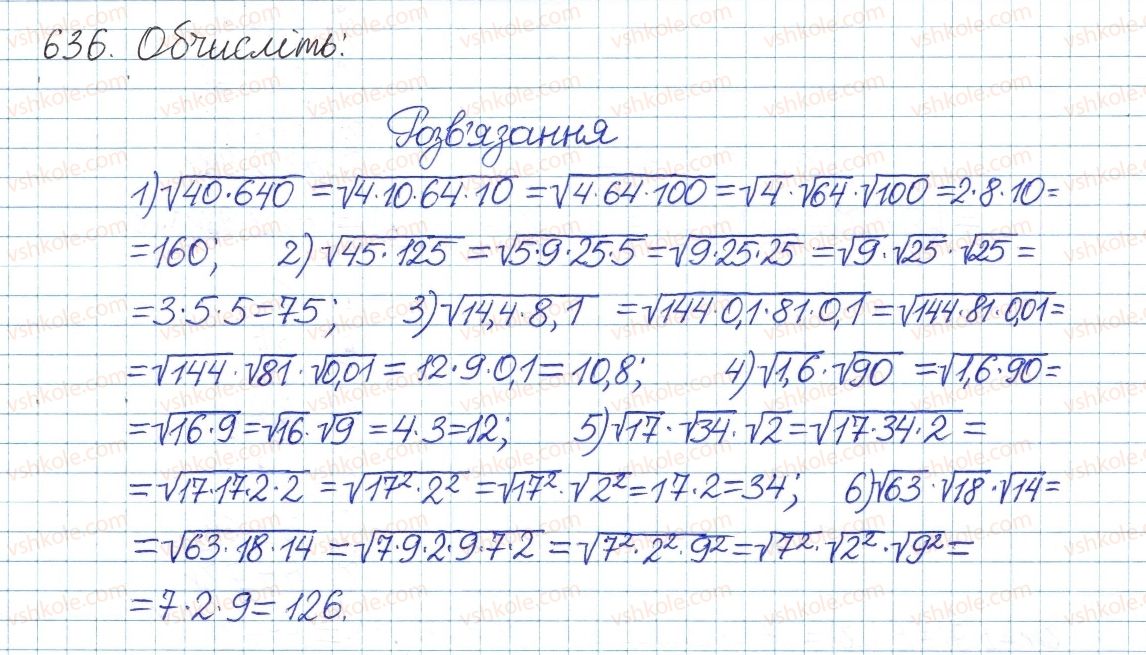 636. Обчисліть:
Розв'язання
1) √40·640 = √4·10·64·10 = √4·64·100 = √4·√64·√100 = 2·8·10=
=160; 2) √45·125 = √5·9·25·5 = √9·25·25 = √9·√25·√25 =
=3·5·5=75; 3) √14,4·8,1 = √144·0,1·81·0,1 = √144·81·0,01=
=√144·√81·√0,01 = 12·9·0,1=10,8; 4) √1,6·√90 = √1,6·90=
=√16·9=√16·√9=4·3=12; 5) √17·√34·√2=√17·34·2 =
=√17·17·2·2 = √17²·2² = √17²·√2²=17·2=34; 6) √63·√18·√14=
=√63·18·14 = √7·9·2·9·7·2 = √7²·2²·9²=√7²·√2²·√9²=
=7·2·9=126.